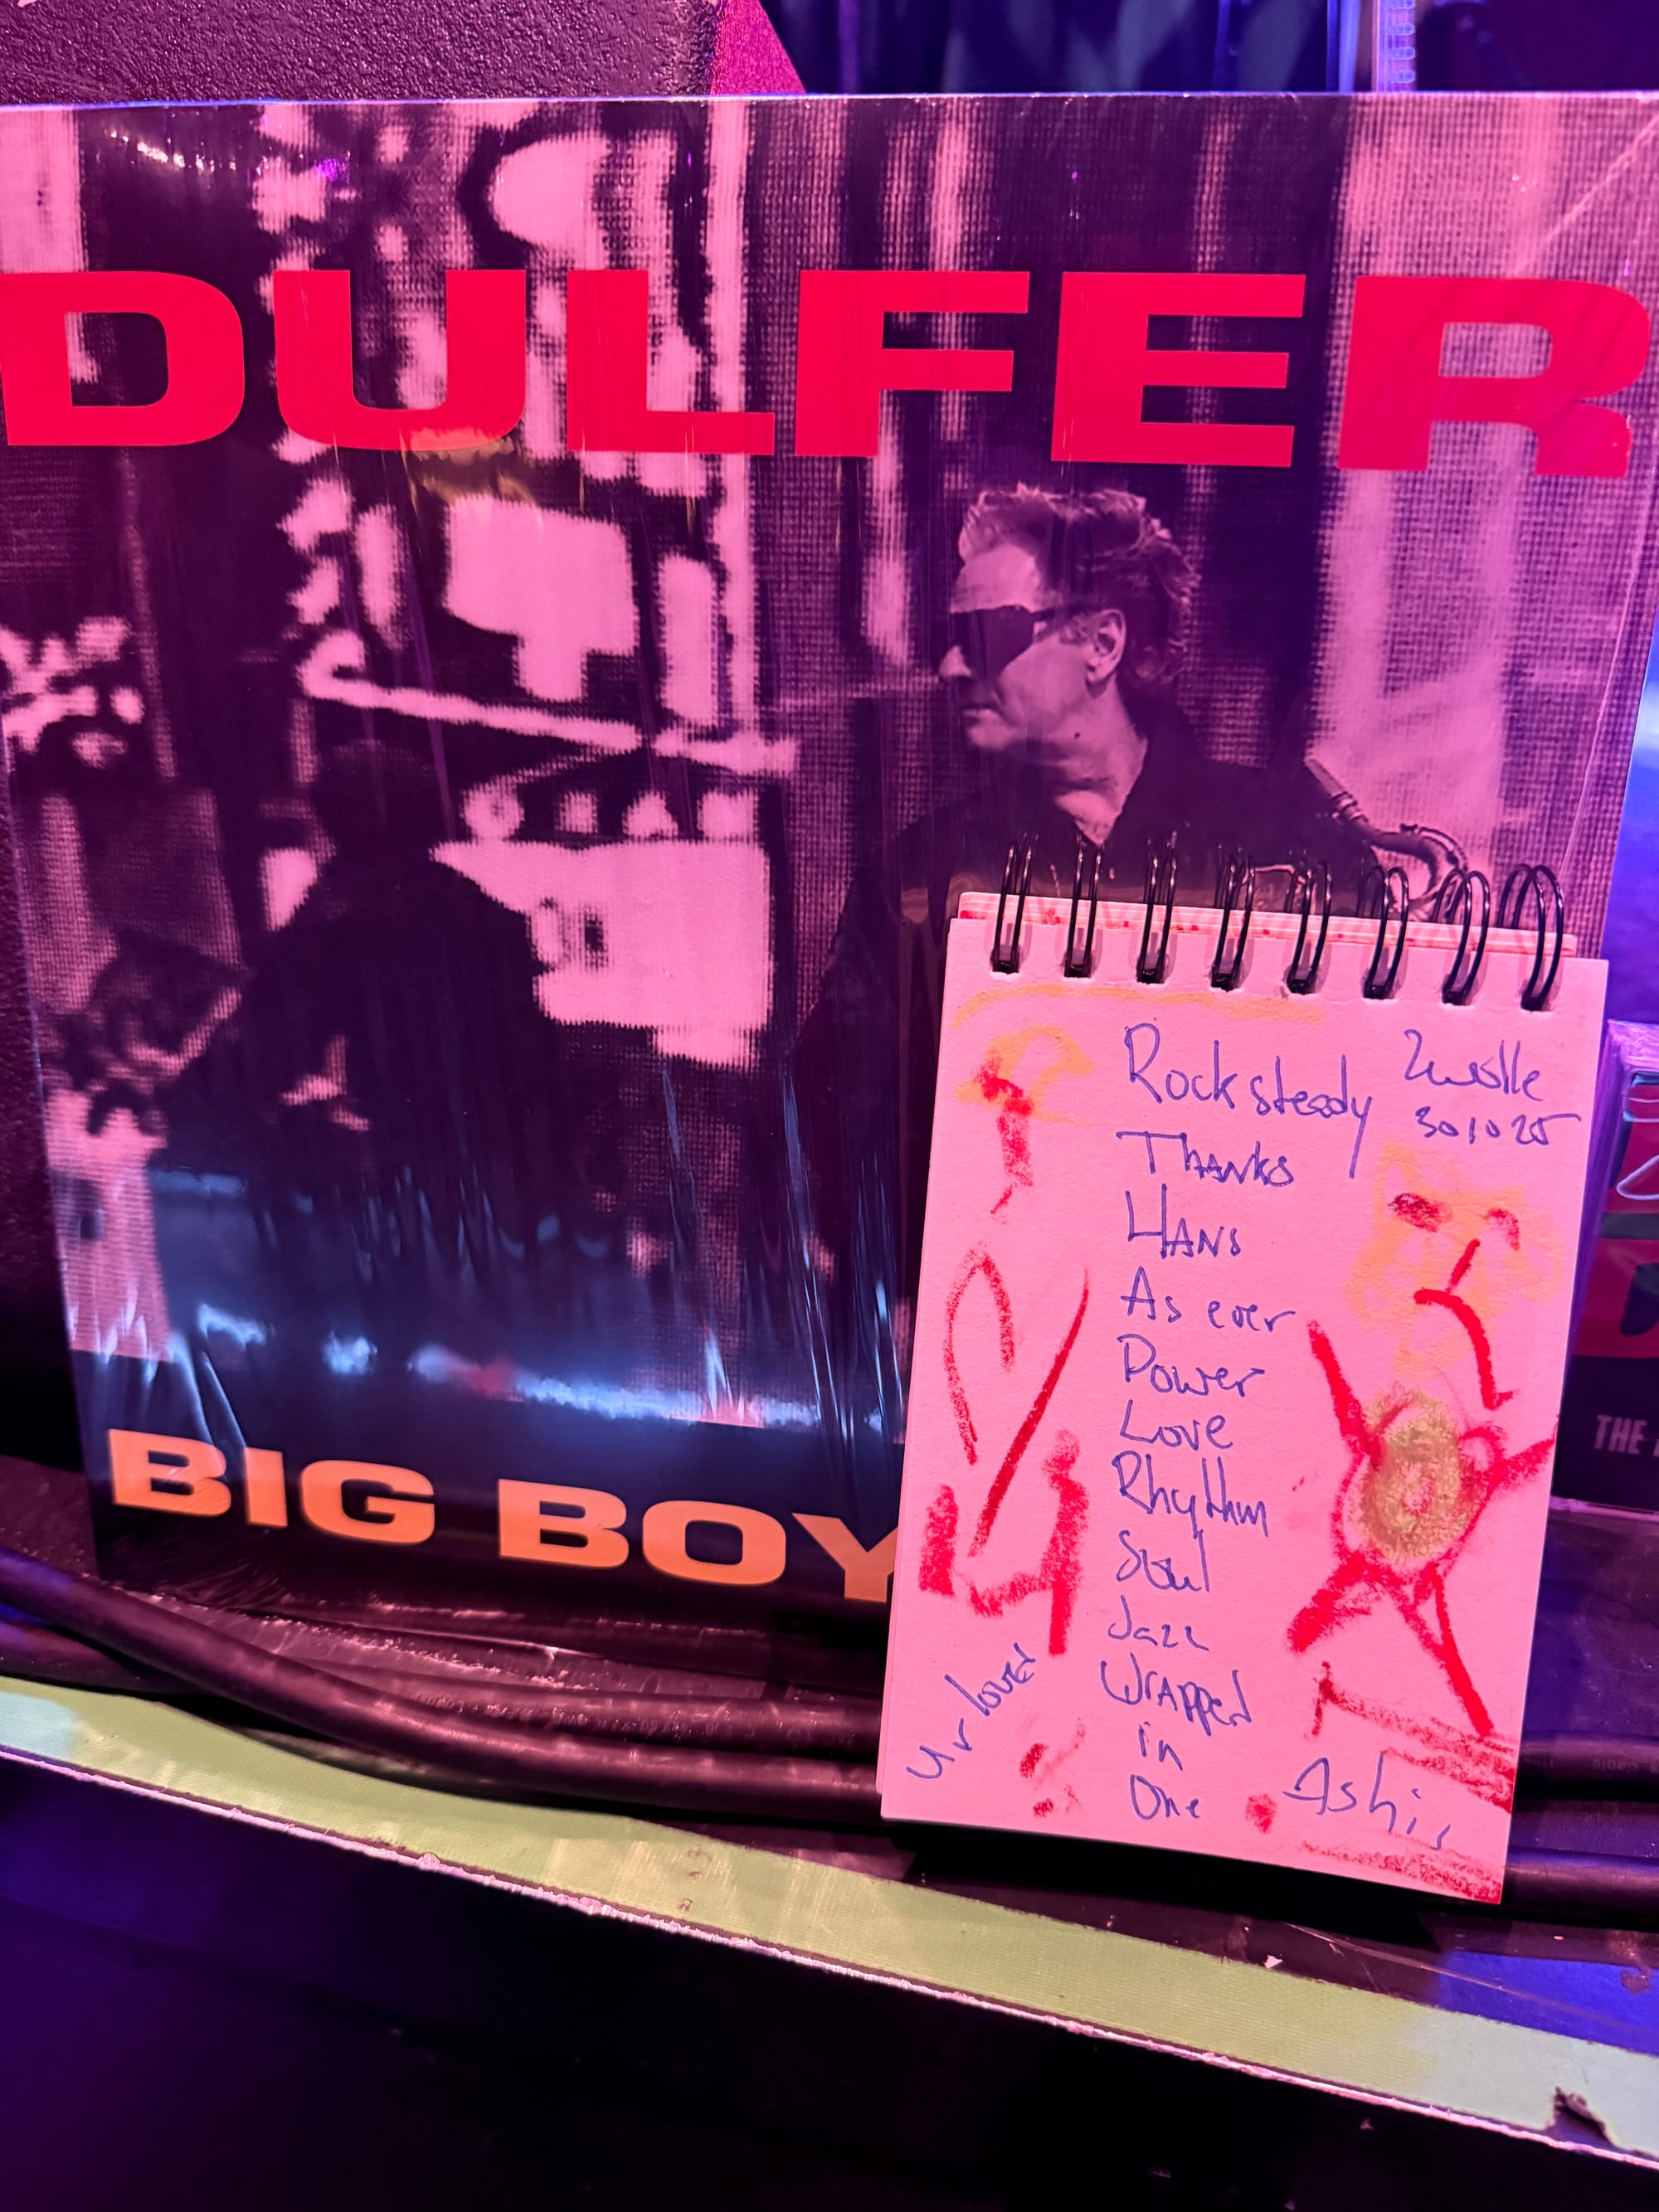 DULFER
BIG BOY
Rocksteady
Zwolle
301025
THANKS
HANS
As ever
Power
Love
Rhythm
Soul
Jazz
Wrapped
in
One
Ur loved
Ashis
THE